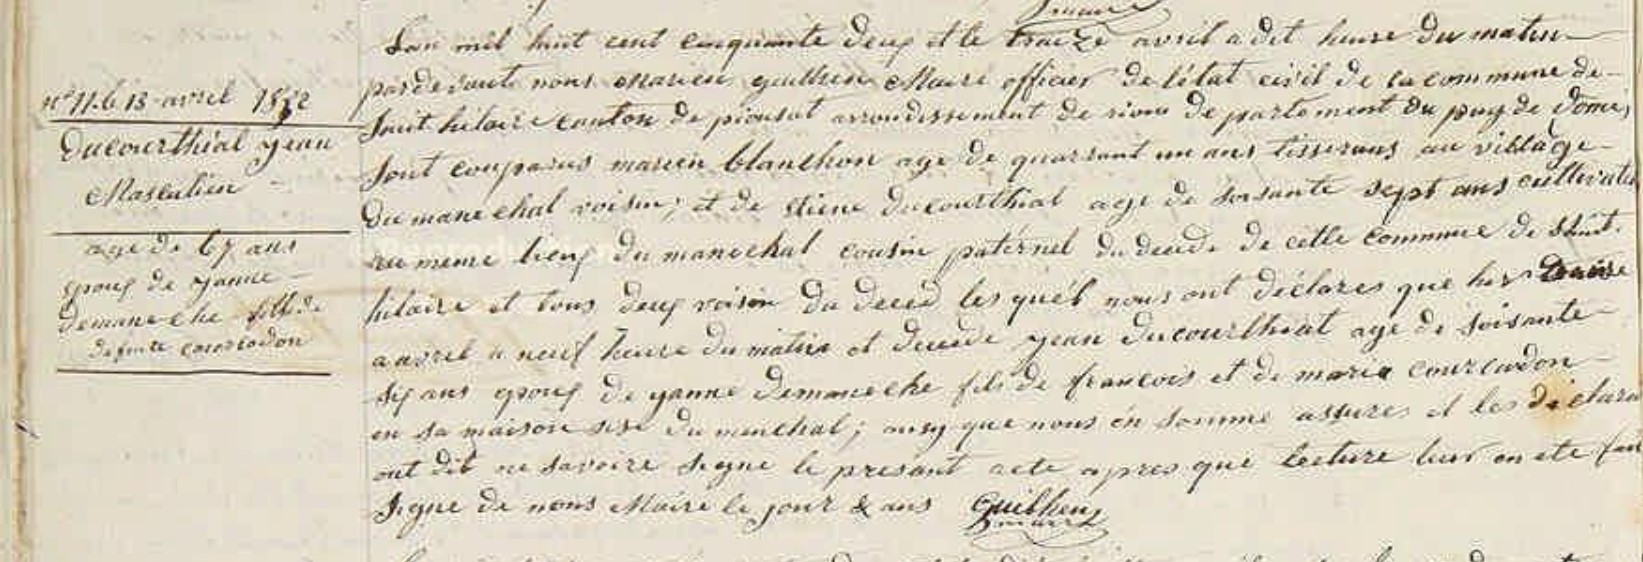 nº 11. 6 13 avril 1852
Ducourthial jean
Masculien
age de 67 ans
epoux de janne
demaneche fils de
defunte courtadon
Lan mil huit cent cinquante deux et le traize avril a dit heure du matin
pardevant nous Marien guilhen Maire officier de létat civil de la commune de
Saint hilaire canton de pionsat arrondissement de riom departement du puy de dome,
Sont comparus marien blanchon age de quarrant un ans tisserans au village
du manechal voisin; et de etiene ducourthial age de soisante sept ans cultivateu
au meme lieux du manechal cousin paternel du decede de cette commune de Saint
hilaire et tous deux voisin du deced les quél nous ont déclares que hier
avril a neuf heure du matin et decede jean ducourthial age de soisante
six ans epoux de janne demaneche fils de francois et de maria courtadon
en sa maison sise du menchal; ainsy que nous en somme assures et les déclara
ont dit ne savoire signe le presant acte apres que lecture leur en ete fait
Signe de nous Maire le jour & ans Guilhen
maire